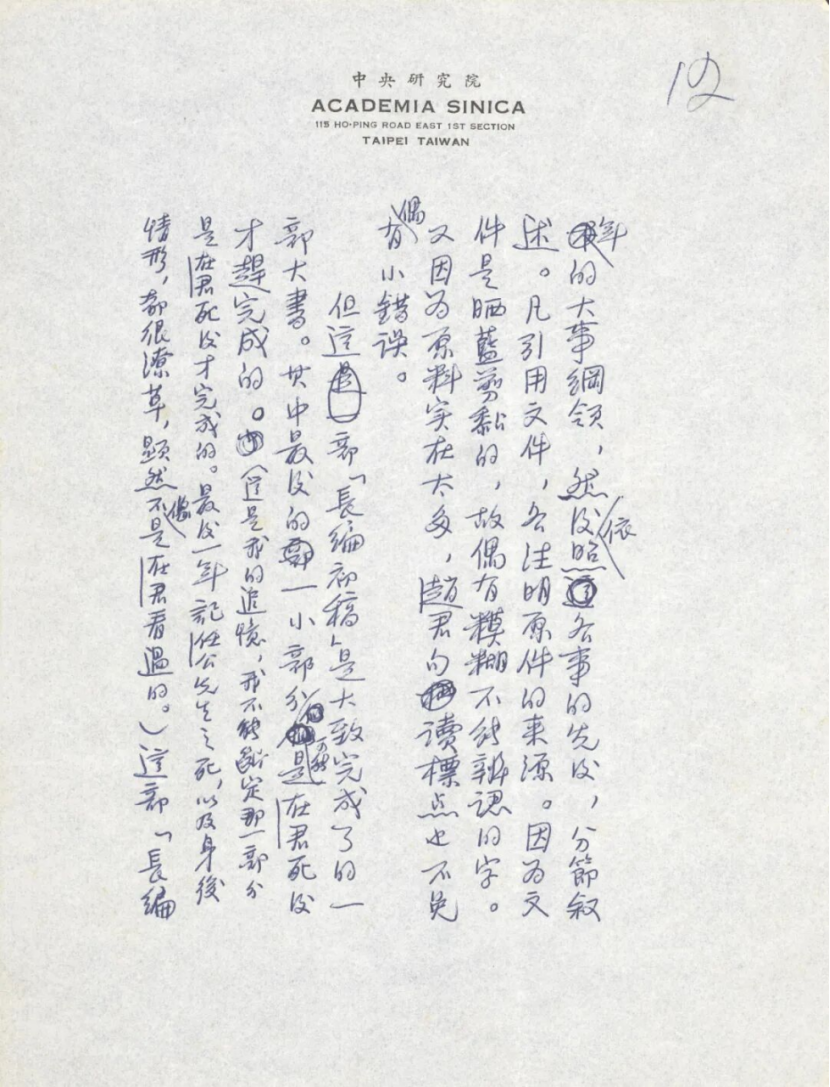 12
中央研究院
ACADEMIA SINICA
115 HO-PING ROAD EAST 1ST SECTION
TAIPEI TAIWAN
年的大事綱領,然後依照各事的先後,分節叙
述。凡引用文件,各注明原件的來源。因为文
件是晒藍剪黏的,故偶有糢糊不能辨認的字。
又因为原料实在太多,趙君句讀標点也不免
偶有小錯誤。
但這部「長編初稿」是大致完成了的一
部大書。其中最後的一小部分可能是在君死後
才趕完成的。(這是我的追憶,我不能斷定那一部分
是在君死後才完成的。最後一年記任公先生之死,以及身後
情形,都很潦草,顯然不像是在君看過的。)這部「長編